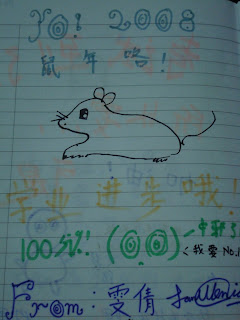 Yo! 2008
鼠年哈!
学业进步哦!
100分!
(我要 No.1
From: 雯倩